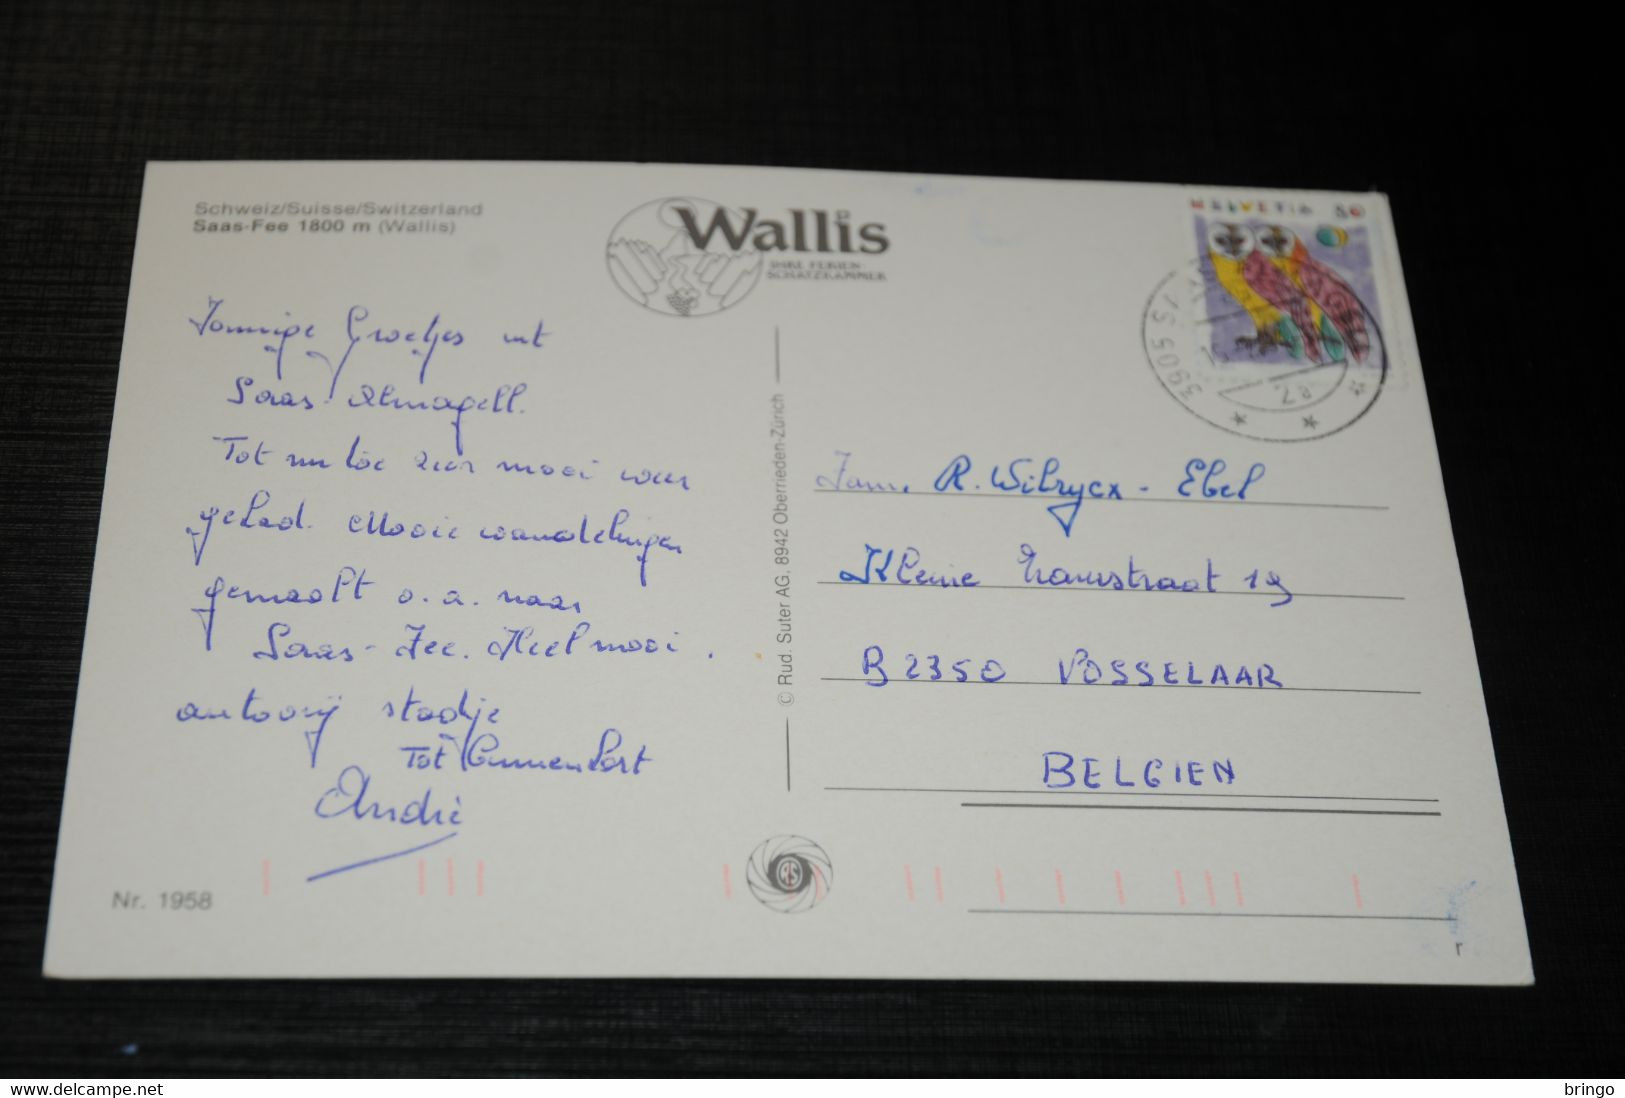 Schweiz/Suisse/Switzerland
Saas-Fee 1800 m (Wallis)
Wallis
IHRE FERIEN-
SCHATZKAMMER
HELVETIA 80
3905 SAAS
Innige Groetjes uit
Saas-Almagell.
Tot nu toe zeer mooi weer
gehad. Mooie wandelingen
gemaakt o.a. naar
Saas-Fee. Heel mooi
autovrij stadje
Tot binnenkort
André
Nr. 1958
© Rud. Suter AG, 8942 Oberrieden-Zürich
Fam. R. Wilrycx - Ebel
Kleine 19
B 2350 VOSSELAAR
BELGIEN
r
delcampe.net
bringo